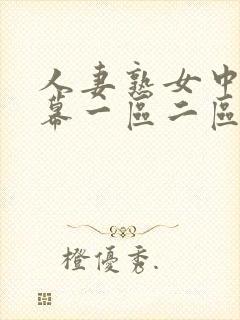 人妻熟女中
幕一區二區
橙優秀.